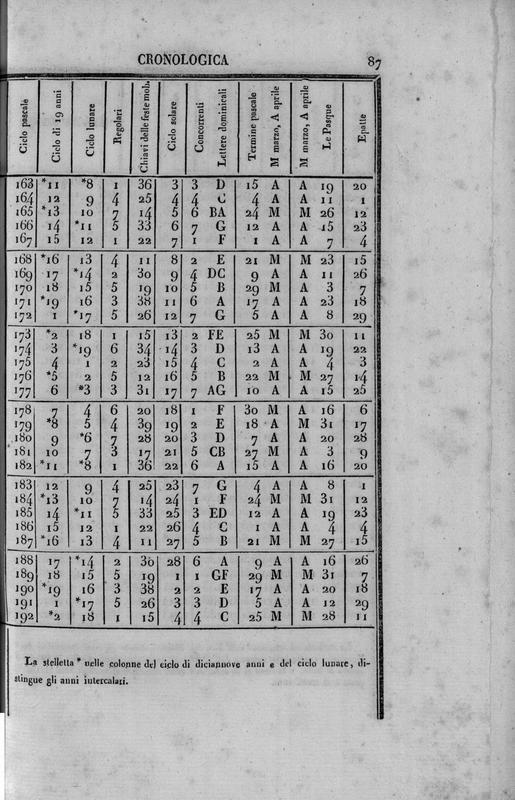 CRONOLOGICA 87
Ciclo pascale Ciclo di 19 anni Ciclo lunare Regolari Chiavi delle feste mob. Ciclo solare Concorrenti Lettere dominicali Termine pascale M marzo, A aprile M marzo, A aprile Le Pasque Epatte
163 *11 *8 1 36 3 3 D 15 A A 19 20
164 12 9 4 25 4 4 C 4 A A 11 1
165 *13 10 7 14 5 6 BA 24 M M 26 12
166 14 *11 5 33 6 7 G 12 A A 15 23
167 15 12 1 22 7 1 F 1 A A 7 4
168 *16 13 4 11 8 2 E 21 M M 23 15
169 17 *14 2 30 9 4 DC 9 A A 11 26
170 18 15 5 19 10 5 B 29 M A 3 7
171 *19 16 3 38 11 6 A 17 A A 23 18
172 1 *17 5 26 12 7 G 5 A A 8 29
173 *2 18 1 15 13 2 FE 25 M M 30 11
174 3 *19 6 34 14 3 D 13 A A 19 22
175 4 1 2 23 15 4 C 2 A A 4 3
176 *5 2 5 12 16 5 B 22 M M 27 14
177 6 *3 3 31 17 7 AG 10 A A 15 25
178 7 4 6 20 18 1 F 30 M A 16 6
179 *8 5 4 39 19 2 E 18 A M 31 17
180 9 *6 7 28 20 3 D 7 A A 20 28
181 10 7 3 17 21 5 CB 27 M A 3 9
182 *11 *8 1 36 22 6 A 15 A A 16 20
183 12 9 4 25 23 7 G 4 A A 8 1
184 *13 10 7 14 24 1 F 24 M M 31 12
185 14 *11 5 33 25 3 ED 12 A A 19 23
186 15 12 1 22 26 4 C 1 A A 4 4
187 *16 13 4 11 27 5 B 21 M M 27 15
188 17 *14 2 30 28 6 A 9 A A 16 26
189 18 15 5 19 1 1 GF 29 M M 31 7
190 *19 16 3 38 2 2 E 17 A A 20 18
191 1 *17 5 26 3 3 D 5 A A 12 29
192 *2 18 1 15 4 4 C 25 M M 28 11
La stelletta * nelle colonne del ciclo di diciannove anni e del ciclo lunare, di-
stingue gli anni intercalari.